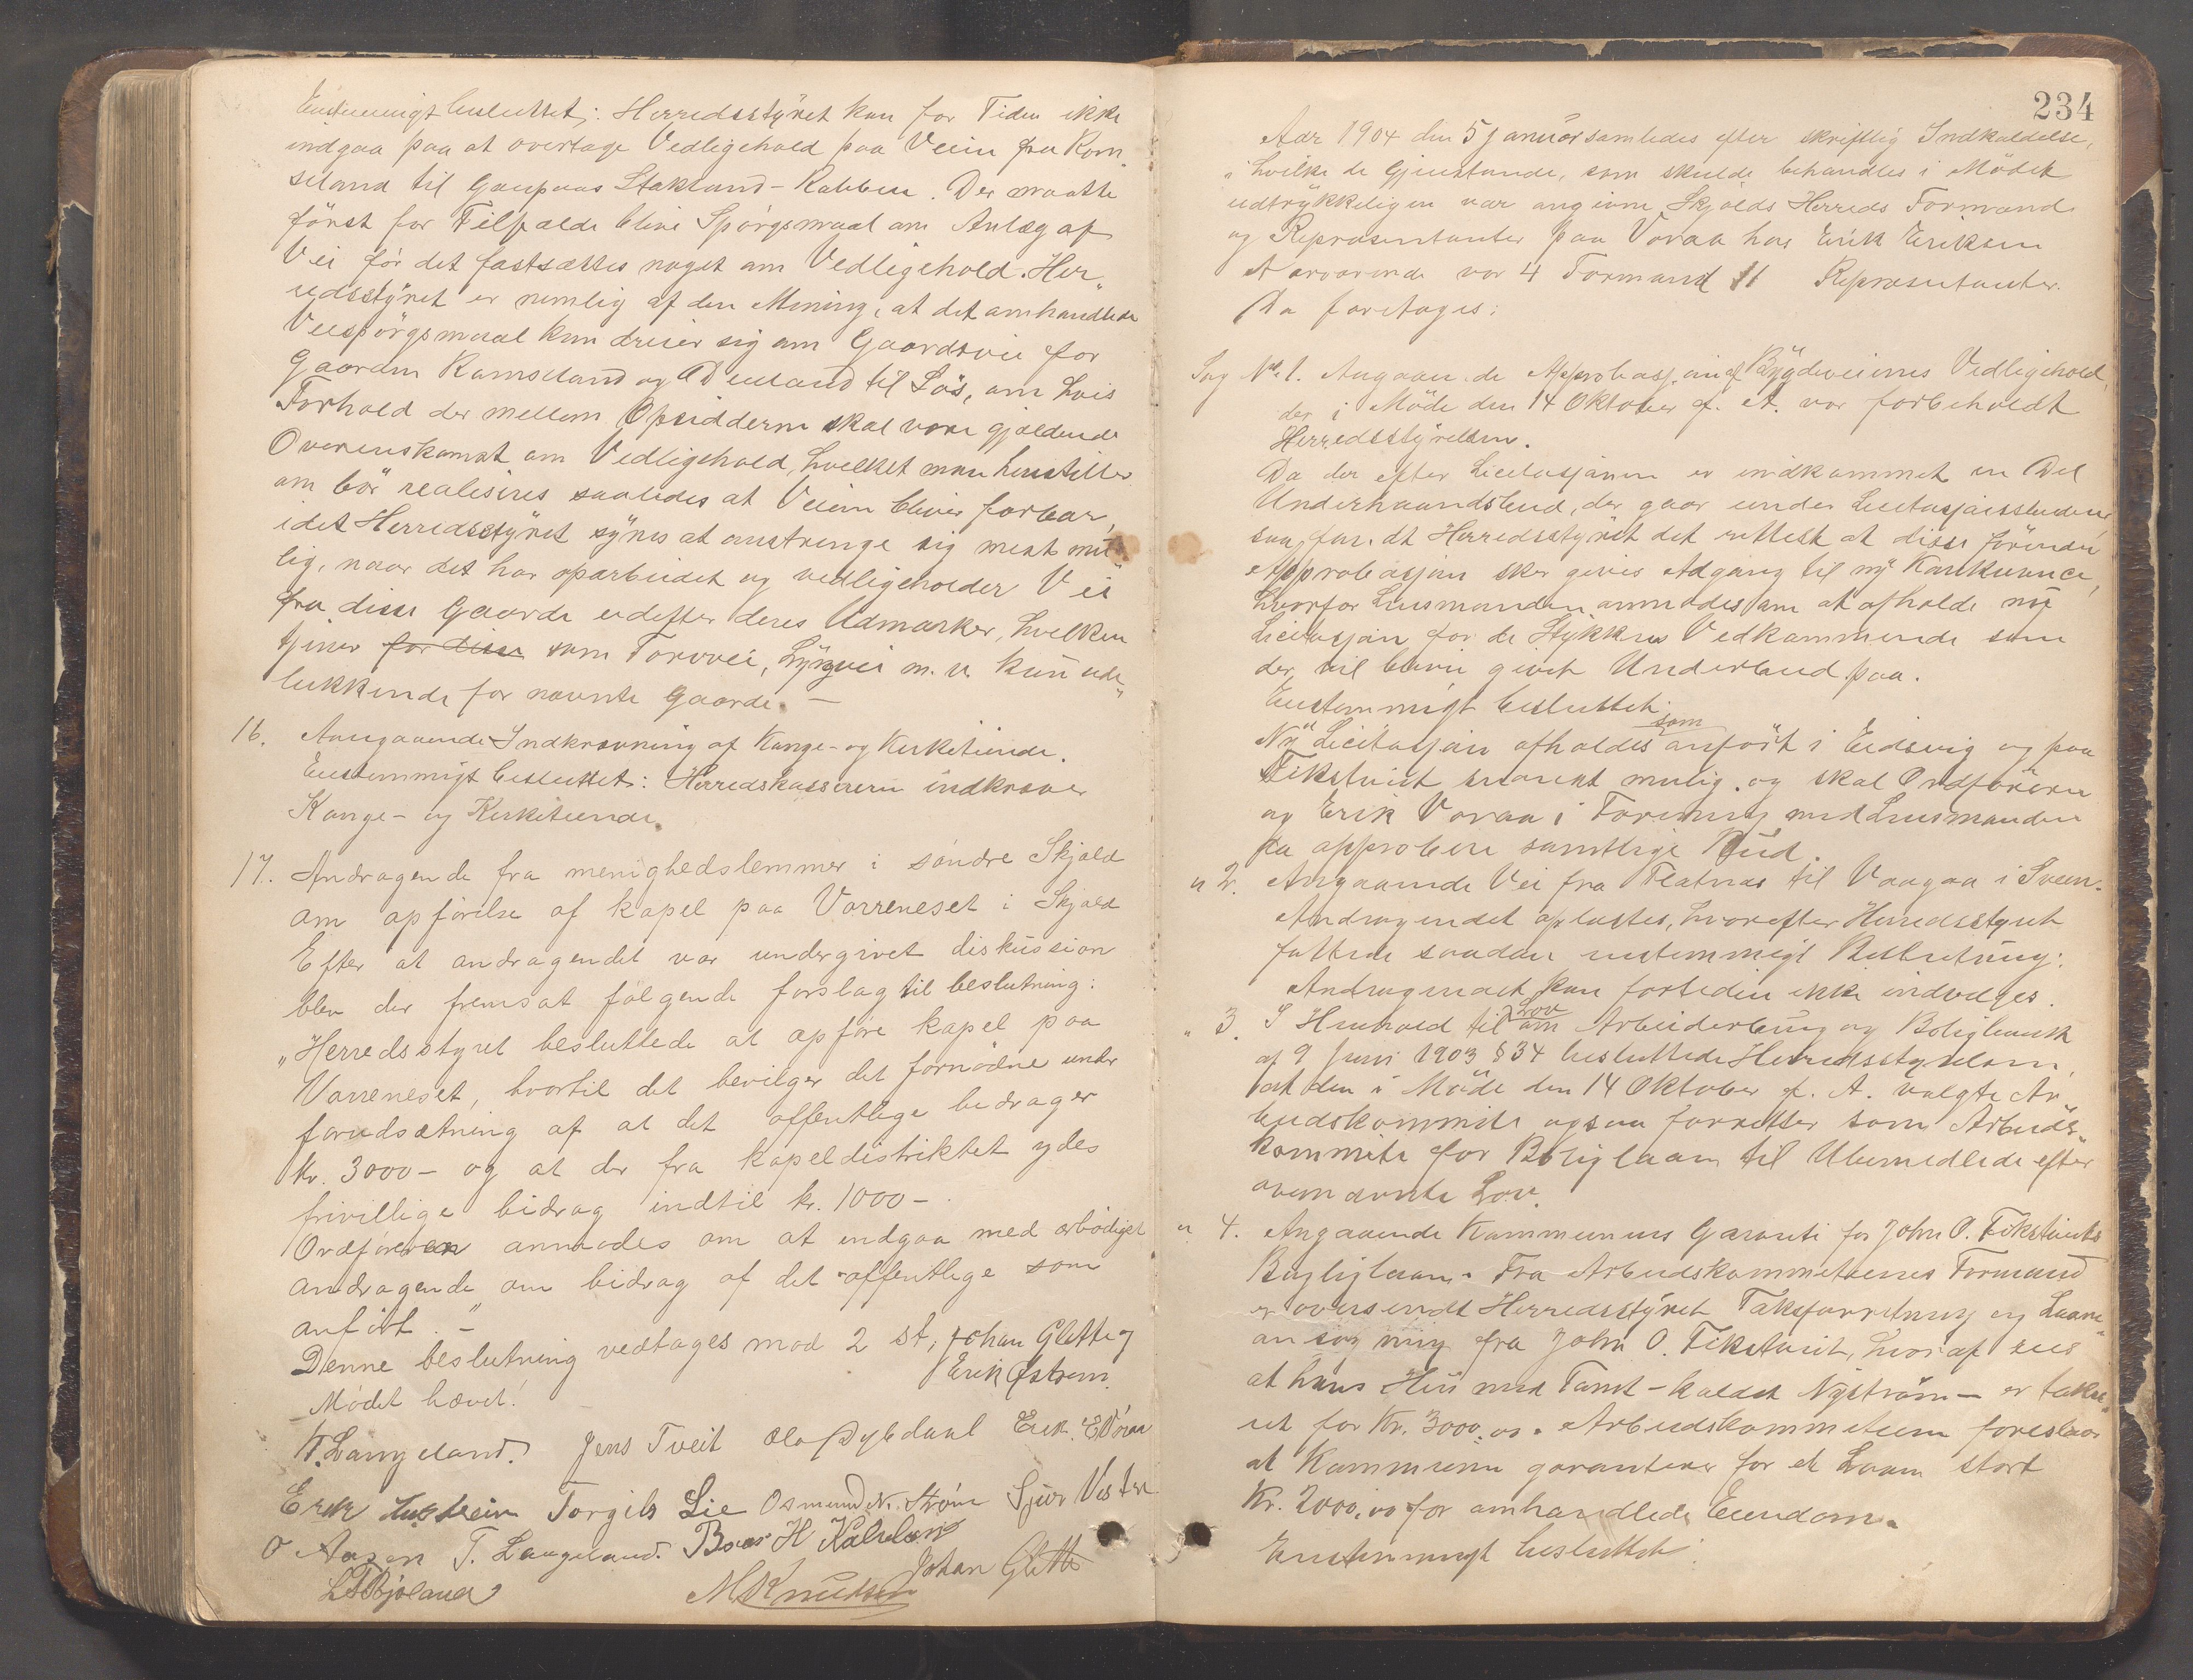 Enstemmigt besluttet: Herredsstÿret kan for Tiden ikke
indgaa paa at overtage Vedligehold paa Veien fra Rom-
seland til Gaupaas Stakland-Kabben. Der maatte
først for Tilfælde blive Spørgsmaal om Anlæg af
Vei før det fastsættes noget om Vedligehold. Her„
redsstÿret er nemlig af den Mening, at det omhandlede
Veispørgsmaal kun dreier sig om Gaardsvei for
Gaarden Ramseland og til Løs, om hvis
Forhold der mellem Opsidderne skal være gjældende
Overenskomst om Vedligehold, hvilket man henstiller
om bør realiseres saaledes at Veien bliver farbar,
idet Herredsstÿret sÿnes at anstrenge sig mest mu„
lig, naar det har oparbeidet og vedligeholder Vei
fra disse Gaarde udefter deres Udmarker, hvilken
tjener for disse som Torvvei, Lÿngvei m. v. kun ude„
lukkende for nævnte Gaarde. —
16. Aangaaende Indkrævning af Konge- og Kirketiende.
Enstemmigt besluttet: Herredskassereren indkræver
Konge- og Kirketiende.
17. Andragende fra menighedslemmer i søndre Skjold
om opførelse af kapel paa Vorreneset i Skjold
Efter at andragendet var undergivet diskussion
blev der fremsat følgende forslag til beslutning:
„Herredsstyret besluttede at opføre kapel paa
Vorreneset, hvortil det bevilger det fornødne under
forudsætning af at det offentlige bidrager
kr. 3000- og at der fra kapeldistriktet ydes
frivillige bidrag indtil kr. 1000-.
Ordføreren anmodes om at indgaa med ærbødigst
andragende om bidrag af det offentlige som
anført. -"
Denne beslutning vedtages mod 2 st, Johan Glette og
Erik Østrem.
Mødet hævet!
T. Langeland. Jens Tveit Ola Dybdahl Erik E Vöraa
Erik Torgils Lie Osmund N. Strøm Sjur Vestre
O Aasen T. Langeland. Boas H Kalveland
Johan Glette
L Bjoland MKnutsen
234
Aar 1904 den 5 januar samledes efter skriftlig Indkaldelse,
i hvilke de Gjenstande, som skulde behandles i Mødet
udtrÿkkeligen var angivne, Skjolds Herreds Formænd
og Repræsentanter paa Voraa hos Erik Eriksen
Nærværende var 4 Formænd 11 Repræsentanter.
Da foretages:
Sag No. 1. Angaaende Approbasjonen af Bÿgdeveienes Vedligehold,
der i Møde den 14 Oktober f. A. var forbeholdt
Herredsstÿrelsen.
Da der efter Licitasjonen er indkommet en Del
Underhaandsbud, der gaar under Licitasjonsbudene,
saa fandt Herredsstÿret det rettest at disse førinden
Approbasjon sker gives Adgang til nÿ Konkurance,
hvorfor Lensmanden anmodes om at afholde nÿ
Licitasjon for de Stÿkkers Vedkommende som
der vil blive givet Underbud paa.
Enstemmigt besluttet:
Nÿ Licitasjon afholdes som anført i Eidsvig og paa
Fikstveit snarest mulig. og skal Ordføreren
og Erik Voraa i Forening med Lensmanden
da approbere samtlige Bud.
" 2. Angaaende Vei fra Flatnæs til Vaagaa i Sveen.
Andragendet oplæstes, hvorefter Herredsstyret
fattede saadan enstemmigt Beslutning:
Andragendet kan fortiden ikke indvilges.
" 3. I Henhold til Lov om Arbeiderbrug og Boligbank
af 9 Juni 1903 § 34 besluttede Herredsstyrelsen,
at den i Møde den 14 Oktober f. A. valgte Ar„
beidskommite ogsaa forretter som Arbeids„
kommite for Boliglaan til Ubemidlede efter
ovennævnte Lov.
" 4. Angaaende Kommunens Garanti for John O. Fikstveits
Boliglaan. Fra Arbeidskommiteens Formand
er oversendt Herredsstÿret Taksforretning og Laane„
ansøgning fra John O. Fikstveit, hvoraf sees
at hans Hus med Tomt - kaldet Nÿstrøm - er takse„
ret for Kr. 3000.00. Arbeidskommiteen foreslaar
at Kommunen garanterer for et Laan stort
Kr. 2000,00 for omhandlede Eiendom.
Enstemmigt besluttet: